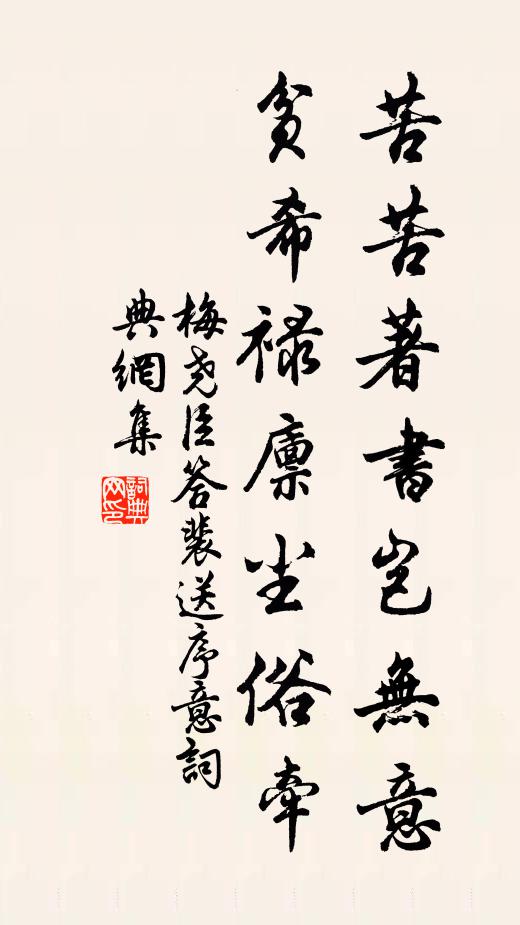 苦苦著書豈無意
貧希祿廪尘俗牽
梅尧臣答裴送序意詞
典網集
詞典
网印